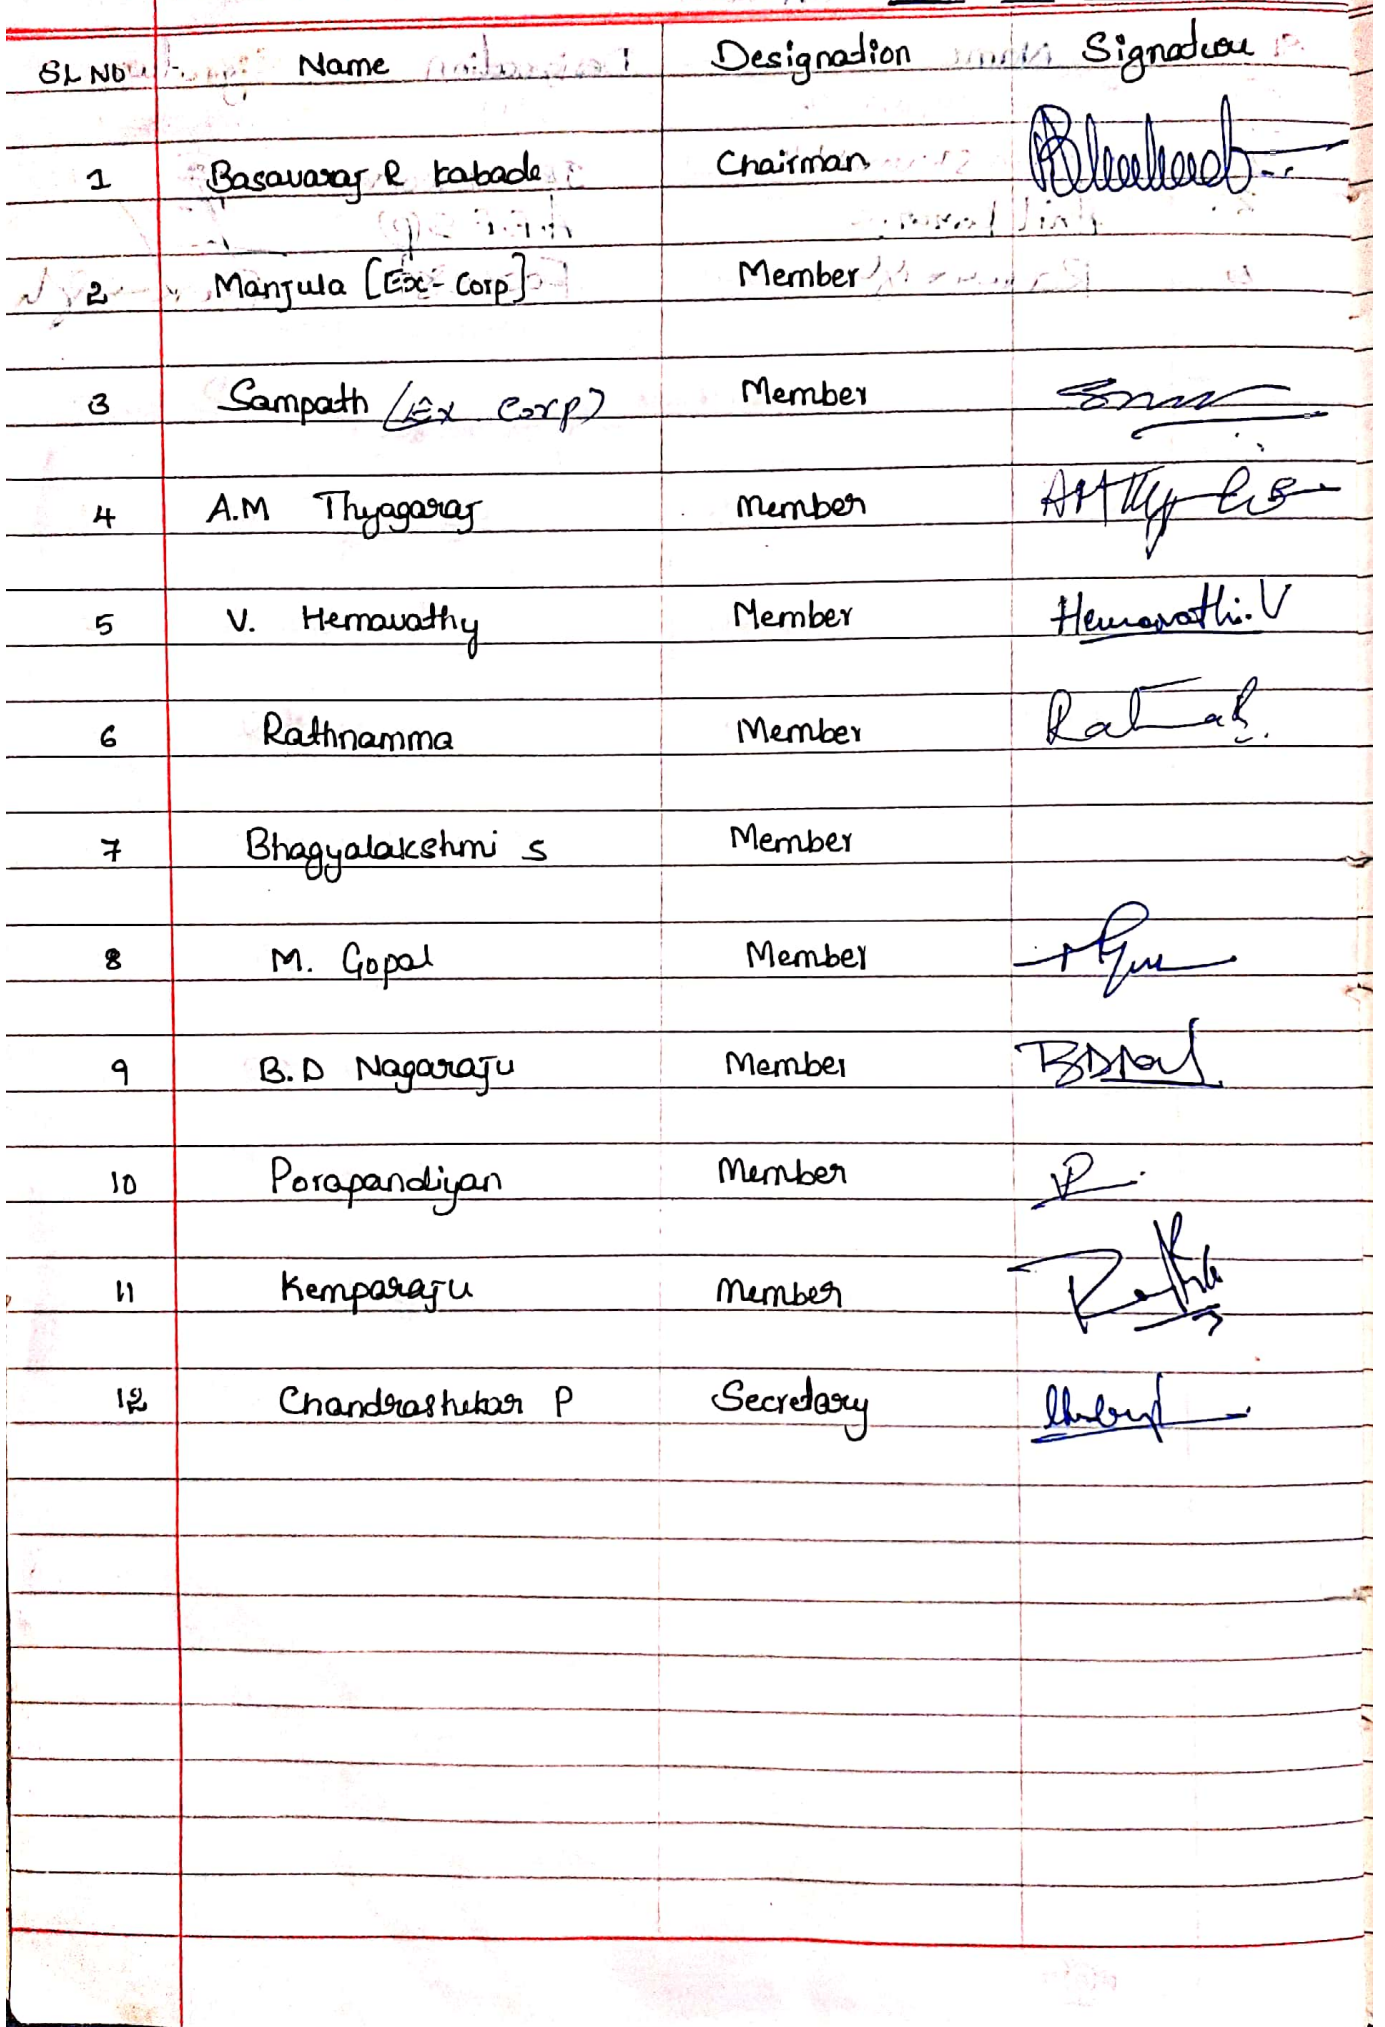 SL No Name Designation Signature
1 Basavaraj R kabade Chairman
2 Manjula [Ex-Corp] Member
3 Sampath (Ex Corp) Member
4 A.M Thyagaraj Member
5 V. Hemavathy Member Hemavathi.V
6 Rathnamma Member
7 Bhagyalakshmi S Member
8 M. Gopal Member
9 B.D Nagaraju Member
10 Porapandiyan Member
11 Kemparaju Member
12 Chandrashekar P Secretary